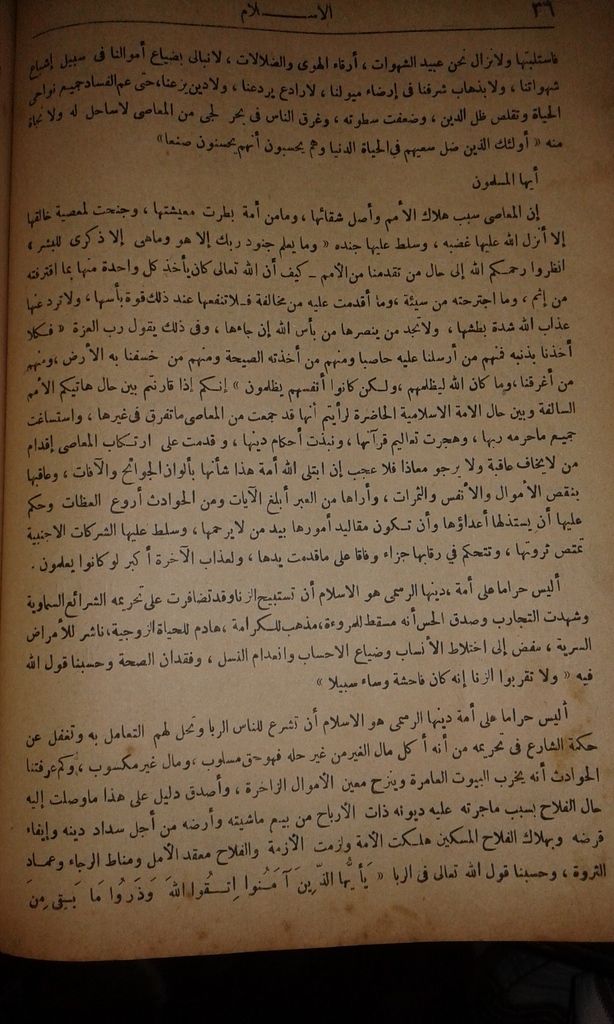 ٣٦
الاســــلام
فاستلبتها ولانزال نحن عبيد الشهوات ، أرقاء الهوى والضلالات ، لانبالى بضياع أموالنا فى سبيل إشباع
شهواتنا ، ولابذهاب شرفنا فى إرضاء ميولنا ، لارادع يردعنا ، ولادين يزعنا ، حتى عم الفساد جميع نواحى
الحياة وتقلص ظل الدين ، وضعفت سطوته ، وغرق الناس فى بحر لجى من المعاصى لاساحل له ولا نجاة
منه « أولئك الذين ضل سعيهم فى الحياة الدنيا وهم يحسبون أنهم يحسنون صنعا »
أيها المسلمون
إن المعاصى سبب هلاك الأمم وأصل شقائها ، ومامن أمة بطرت معيشتها ، وجنحت لمعصية خالقها
إلا أنزل الله عليها غضبه ، وسلط عليها جنده « وما يعلم جنود ربك إلا هو وماهى إلا ذكرى للبشر »
انظروا رحمكم الله إلى حال من تقدمنا من الأمم ـ كيف أن الله تعالى كان يأخذ كل واحدة منها بما اقترفته
من إثم ، وما اجترحته من سيئة ، وما أقدمت عليه من مخالفة فلاتنفعها عند ذلك قوة بأسها ، ولاترد عنها
عذاب الله شدة بطشها ، ولاتجد من ينصرها من بأس الله إن جاءها ، وفى ذلك يقول رب العزة « فكلا
أخذنا بذنبه فمنهم من أرسلنا عليه حاصبا ومنهم من أخذته الصيحة ومنهم من خسفنا به الأرض ، ومنهم
من أغرقنا ، وما كان الله ليظلمهم ، ولكن كانوا أنفسهم يظلمون » إنكم إذا قارنتم بين حال هاتيكم الأمم
السالفة وبين حال الامة الاسلامية الحاضرة لرأيتم أنها قد جمعت من المعاصى ماتفرق فى غيرها ، واستساغت
جميع ماحرمه ربها ، وهجرت تعاليم قرآنها ، ونبذت أحكام دينها ، و قدمت على ارتكاب المعاصى إقدام
من لايخاف عاقبة ولا يرجو معاذا فلا عجب إن ابتلى الله أمة هذا شأنها بألوان الجوائح والآفات ، وعاقبها
بنقص الأموال والأنفس والثمرات ، وأراها من العبر أبلغ الآيات ومن الحوادث أروع العظات وحكم
عليها أن يستذلها أعداؤها وأن تكون مقاليد أمورها بيد من لايرحمها ، وسلط عليها الشركات الاجنبية
تمتص ثروتها ، وتتحكم فى رقابها جزاء وفاقا على ماقدمت يدها ، ولعذاب الآخرة أكبر لو كانوا يعلمون .
أليس حراما على أمة ، دينها الرسمى هو الاسلام أن تستبيح الزنا وقد تضافرت على تحريمه الشرائع السماوية
وشهدت التجارب وصدق الحس أنه مسقط للمروءة ، مذهب للكرامة ، هادم للحياة الزوجية ، ناشر للأمراض
السرية ، مفض إلى اختلاط الأنساب وضياع الاحساب وانعدام النسل ، وفقدان الصحة وحسبنا قول الله
فيه « ولا تقربوا الزنا إنه كان فاحشة وساء سبيلا »
أليس حراما على أمة دينها الرسمى هو الاسلام أن تشرع للناس الربا وتحل لهم التعامل به وتغفل عن
حكمة الشارع فى تحريمه من أنه أكل مال الغير من غير حله فهو حق مسلوب ، ومال غير مكسوب ، وكم عرفتنا
الحوادث أنه يخرب البيوت العامرة وينزح معين الأموال الزاخرة ، وأصدق دليل على هذا ماوصلت إليه
حال الفلاح بسبب ماجرته عليه ديونه ذات الأرباح من بيع ماشيته وأرضه من أجل سداد دينه وإيفاء
قرضه وبهلاك الفلاح المسكين هلكت الأمة ولزمت الأزمة والفلاح معقد الأمل ومناط الرجاء وعماد
الثروة ، وحسبنا قول الله تعالى فى الربا « يَأَيُّهَا الذِّينَ آمَنُوا اتَّقُوا اللهَ وَذَرُوا مَا بَقِىَ مِنَ